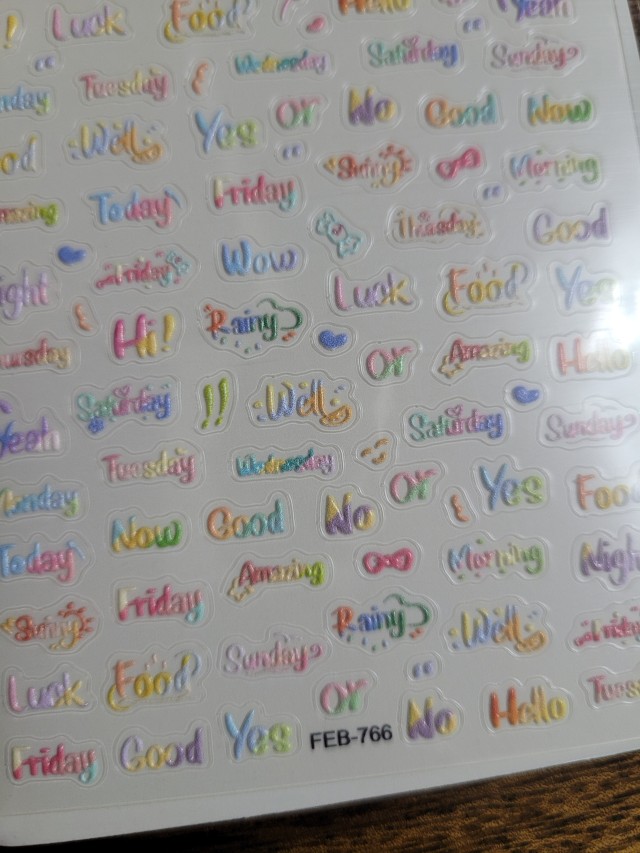 ! Luck Food Hello Yeah
Tuesday Wednesday Saturday Sunday
nday Well Yes Or No Good Now
od Sunny Morning
mazing Today Friday Thusday Good
ight Friday Wow Luck Food Yes
usday Hi! Rainy Or Amazing Hello
Yeah Saturday !! Well Saturday Sunday
Tuesday Wednesday Or Yes Foo
nday Now Good No Morning Nigh
Today Amazing
Sunny Friday Rainy Well Friday
Luck Food Sunday Or Hello Tues
Friday Good Yes FEB-766 No